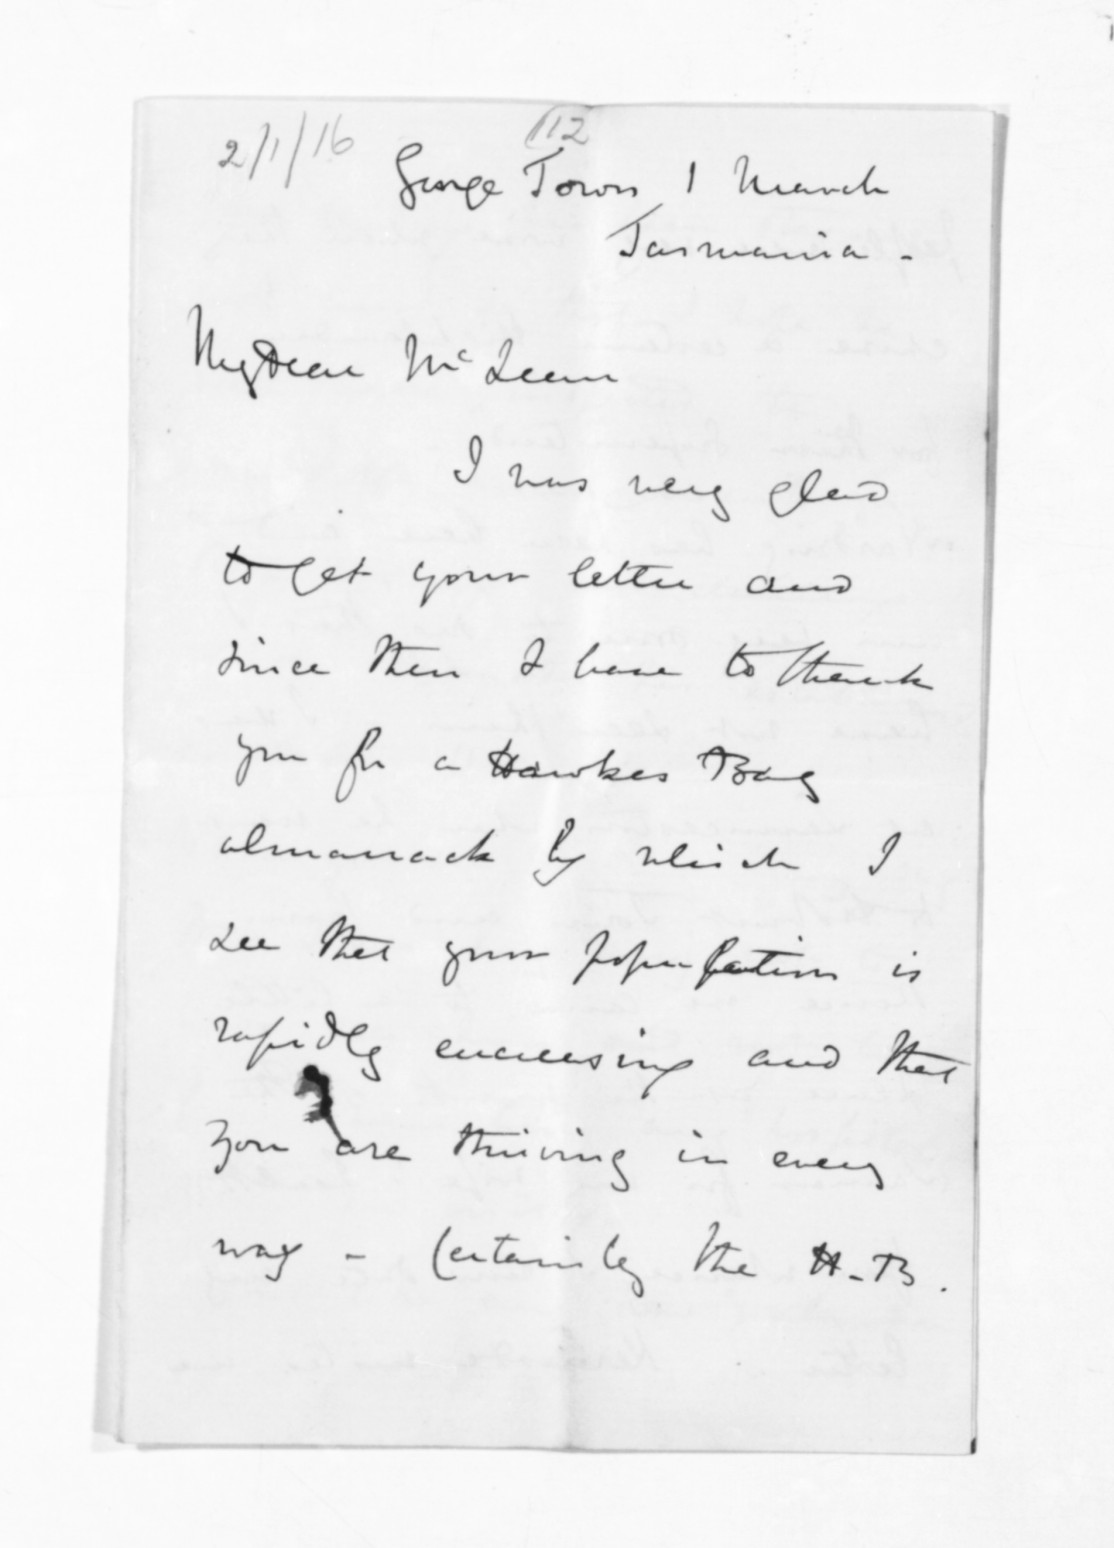 2/1/16
112
George Town 1 March
Tasmania -
My Dear McLean
I was very glad
to get your letter and
since then I have to thank
you for a Hawkes Bay
almanack by which I
see that your population is
rapidly encreasing and that
you are thriving in every
way - Certainly the H-B.